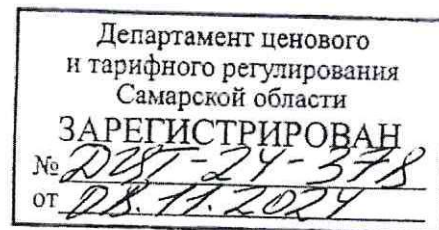 Департамент ценового
и тарифного регулирования
Самарской области
ЗАРЕГИСТРИРОВАН
№ ДЦТ-24-378
от 08.11.2024